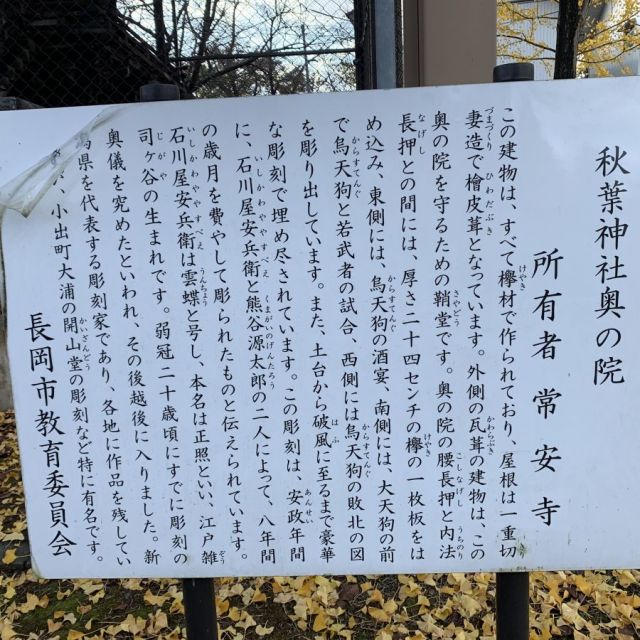 秋葉神社奥の院
所有者 常安寺
この建物は、すべて欅材で作られており、屋根は一重切
妻造で檜皮葺となっています。外側の瓦葺の建物は、この
奥の院を守るための鞘堂です。奥の院の腰長押と内法
長押との間には、厚さ二十四センチの欅の一枚板をは
め込み、東側には、烏天狗の酒宴、南側には、大天狗の前
で烏天狗と若武者の試合、西側には烏天狗の敗北の図
を彫り出しています。また、土台から破風に至るまで豪華
な彫刻で埋め尽されています。この彫刻は、安政年間
に、石川屋安兵衛と熊谷源太郎の二人によって、八年間
の歳月を費やして彫られたものと伝えられています。
石川屋安兵衛は雲蝶と号し、本名は正照といい、江戸雑
司ヶ谷の生まれです。弱冠二十歳頃にすでに彫刻の
奥儀を究めたといわれ、その後越後に入りました。新
潟県を代表する彫刻家であり、各地に作品を残してい
小出町大浦の開山堂の彫刻など特に有名です。
長岡市教育委員会